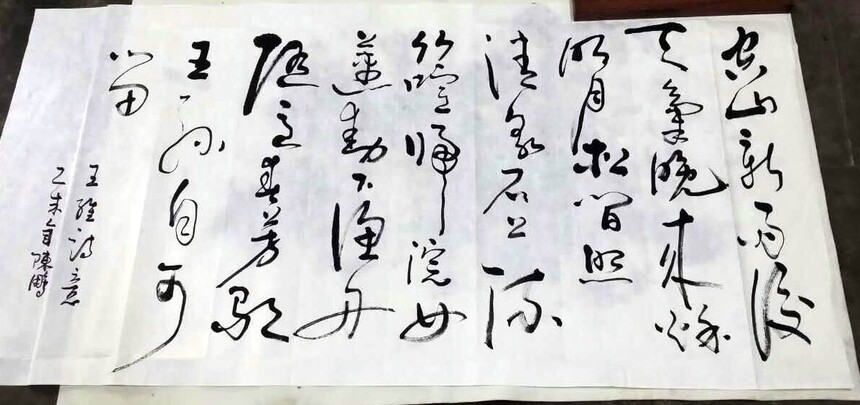 空山新雨後
天氣晚來秋
明月松間照
清泉石上流
竹喧歸浣女
蓮動下漁舟
隨意春芳歇
王孫自可
留
王維詩意
乙未夏陳鵬